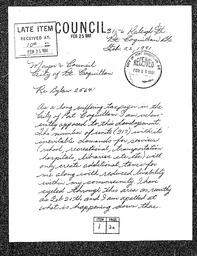 LATE ITEM
RECEIVED AT:
COUNCIL
FEB 25 1991
3176 Raleigh St
Pt. Coquitlam, BC
Feb. 22, 1991
RECEIVED
FEB 25 1991
Mayor & Council
City of Pt. Coquitlam
Re: Bylaw 2564
As a long suffering taxpayer in the
City of Port Coquitlam I am
opposed to the development.
The number of units (317) with its
inevitable demands for services
(school, recreational, transportation
hospitals, libraries etc, etc) will
only create additional taxes for
me along with reduced livability
within my community. I have
cycled through this area on
Feb 21st and I am appalled at
what is happening down there.
ITEM PAGE
1 2a